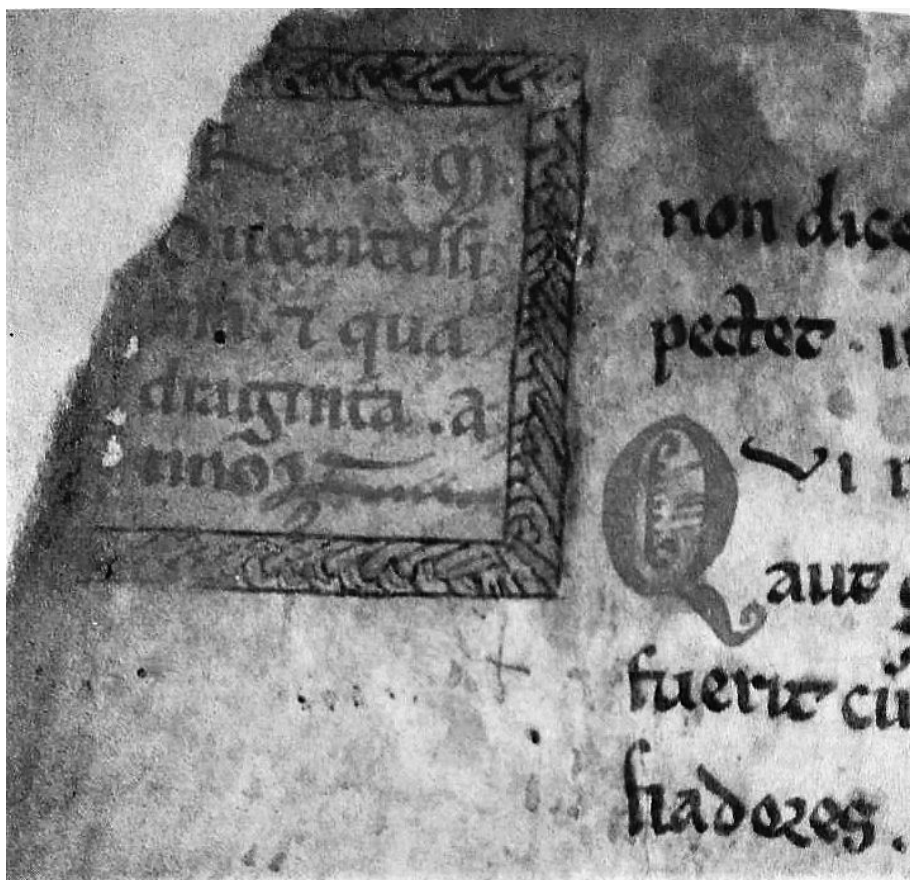 Ducentessi
ma. ⁊ qua
draginta. a
nnos
non dice
pectet. 
Qui
aut
fuerit cū
fiadores.